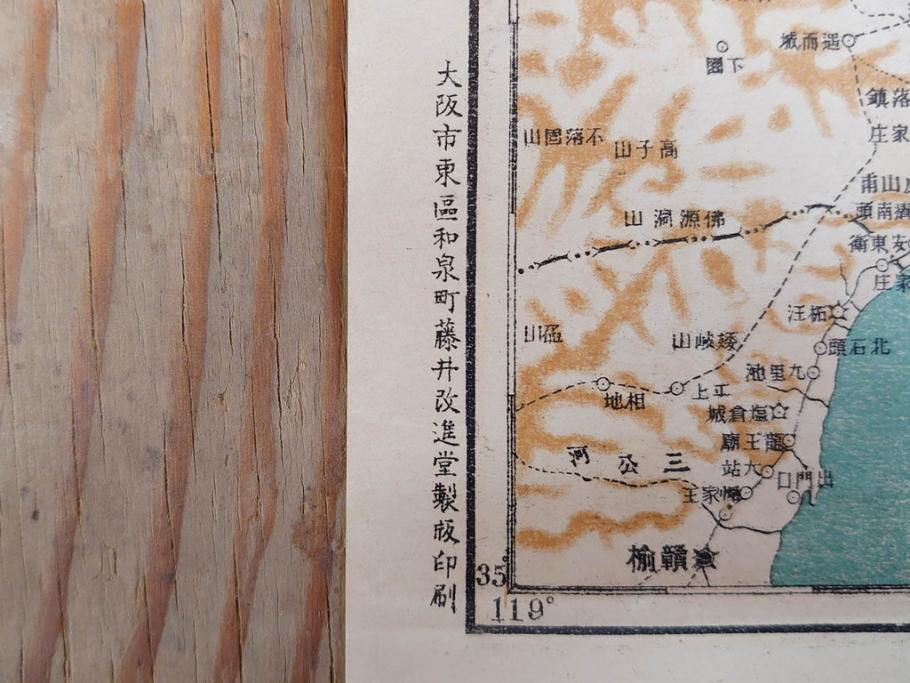 大阪市東區和泉町藤井改進堂製版印刷
城而遥
下園
鎮落
庄家
山固落不
山子高
山源佛
頭南濤
衛東安
庄家
汪柘
頭石北
山岐
池里九
上平
地相
城倉塩
廟王龍
站大
三公河
口門出
王家
榆贛
35
119°